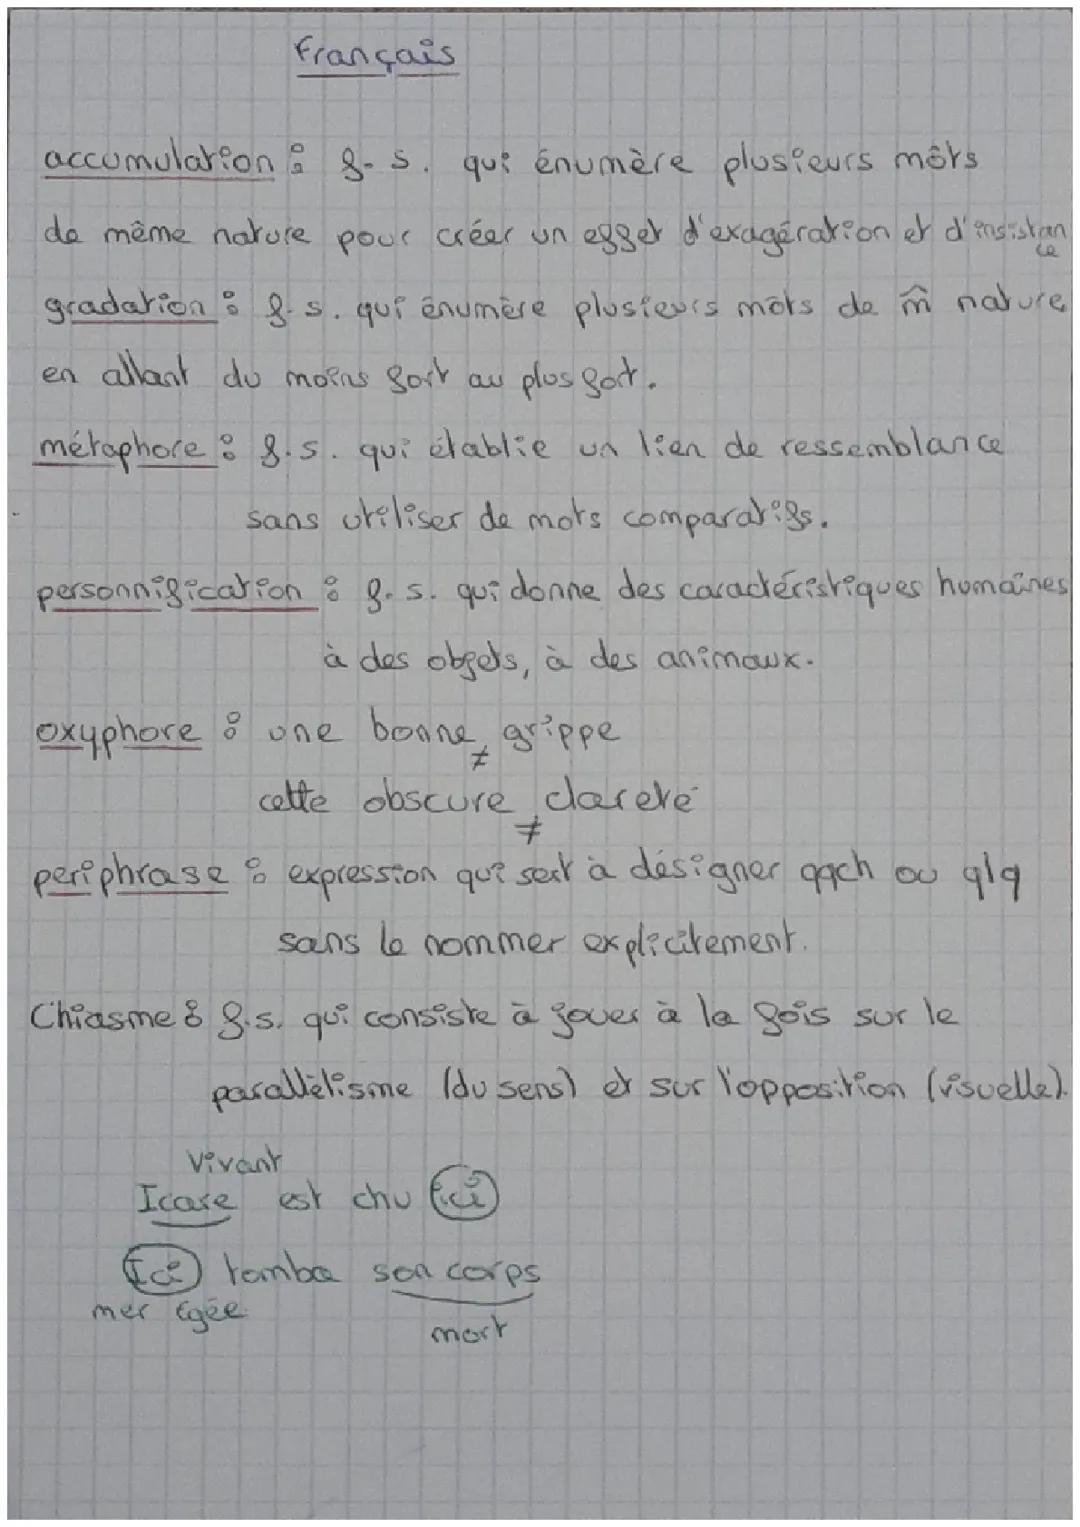 Français
accumulation : f.s. qui énumère plusieurs môts
de même nature pour créer un effet d'exagération et d'insistan
ce
gradation : f.s. qui énumère plusieurs mots de m̂ nature
en allant du moins fort au plus fort.
métaphore : f.s. qui établie un lien de ressemblance
sans utiliser de mots comparatifs.
personnification : f.s. qui donne des caractéristiques humaines
à des objets, à des animaux.
oxyphore : une bonne ≠ grippe
cette obscure ≠ clareté
periphrase : expression qui sert à désigner qqch ou qlq
sans le nommer explicitement.
Chiasme : f.s. qui consiste à jouer à la fois sur le
parallèlisme (du sens) et sur l'opposition (visuelle).
Vivant
Icare est chu ici
Ici tomba son corps
mer Egée
mort